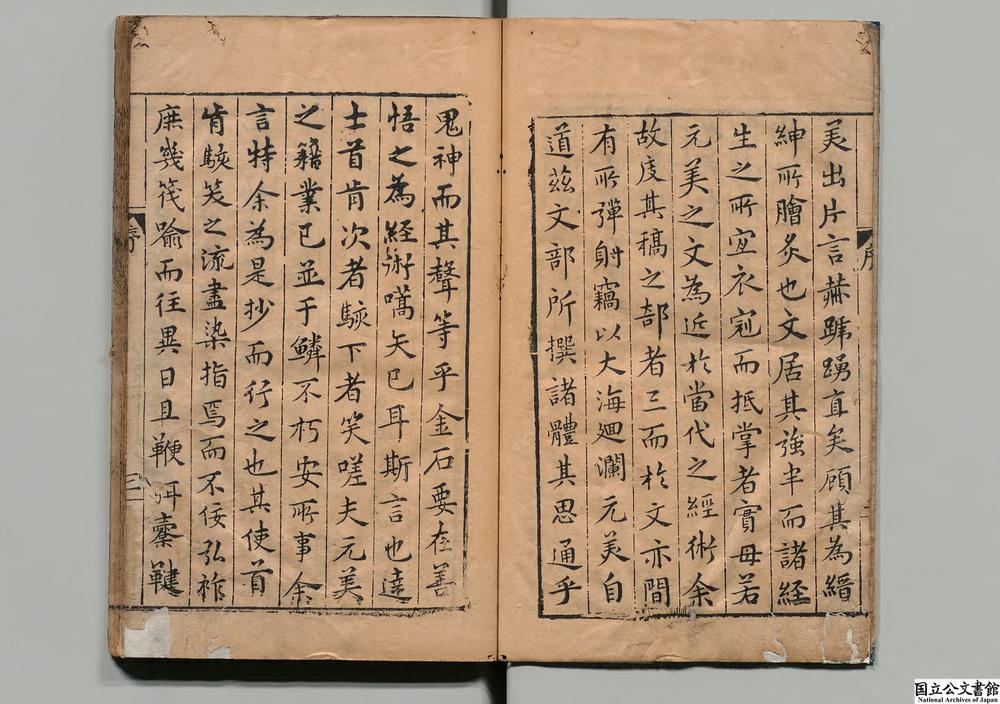 美出片言赫蹏踴直矣顧其為縉
紳所膾炙也文居其強半而諸經
生之所宜衣冠而抵掌者實毋若
元美之文為近於當代之經術余
故度其稿之部者三而於文亦間
有所彈射竊以大海廻瀾元美自
道茲文部所撰諸體其思通乎
鬼神而其聲等乎金石要在善
悟之為經術嚆矢已耳斯言也達
士首肯次者駭下者笑嗟夫元美
之籍業已並于鱗不朽安所事余
言特余為是抄而行之也其使首
肯駭笑之流盡染指焉而不佞弘祚
庶幾筏喻而往異日且鞭弭櫜鞬
序
序
三
国立公文書館
National Archives of Japan